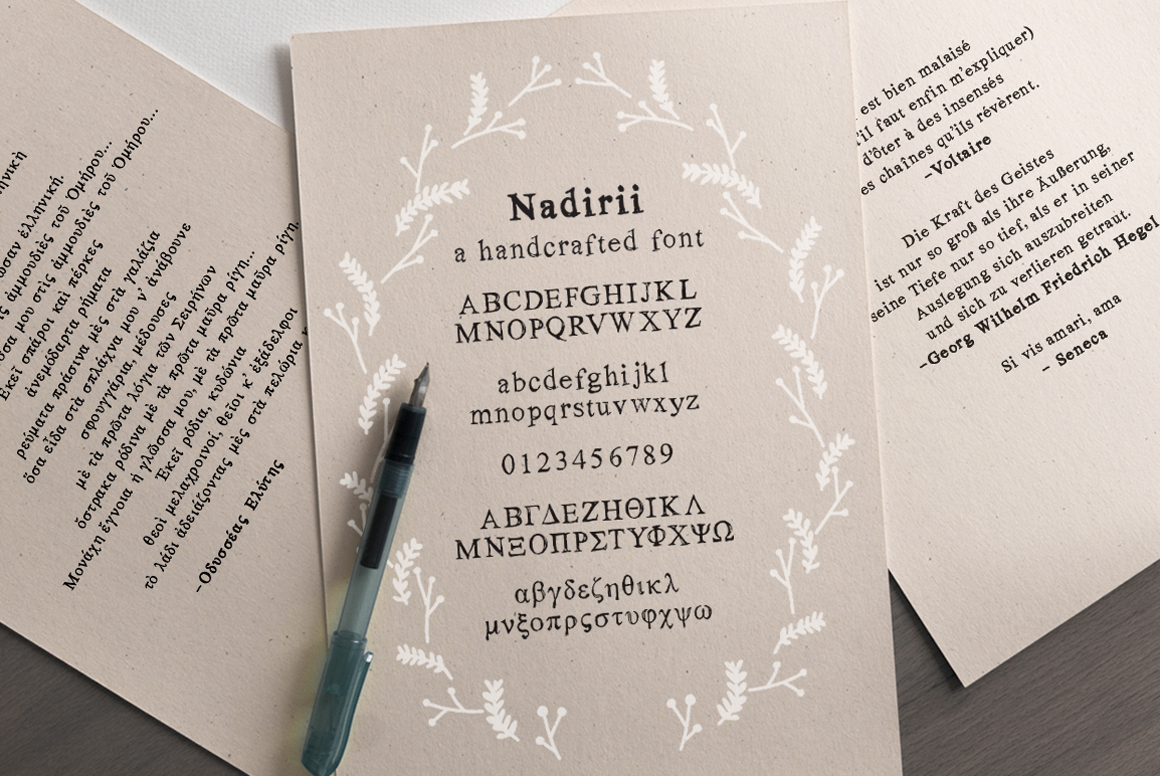 ἑλληνική.
ἀμμουδιὲς τοῦ Ὁμήρου...
μου στὶς ἀμμουδιὲς τοῦ Ὁμήρου...
Ἐκεῖ σπάροι καὶ πέρκες
ἀνεμόδαρτα ρήματα
ρεύματα πράσινα μὲς στὰ γαλάζια
ὅσα εἶδα στὰ σπλάχνα μου ν' ἀνάβουνε
σφουγγάρια, μέδουσες
μὲ τὰ πρῶτα λόγια τῶν Σειρήνων
ὄστρακα ρόδινα μὲ τὰ πρῶτα μαῦρα ρίγη...
Μονάχη ἔγνοια ἡ γλῶσσα μου, μὲ τὰ πρῶτα μαῦρα ρίγη.
Ἐκεῖ ρόδια, κυδώνια
θεοὶ μελαχροινοί, θεῖοι κ' ἐξάδελφοι
τὸ λάδι ἀδειάζοντας μὲς στὰ πελώρια
-Ὀδυσσέας Ἐλύτης
Nadirii
a handcrafted font
ABCDEFGHIJKL
MNOPQRVWXYZ
abcdefghijkl
mnopqrstuvwxyz
0123456789
ΑΒΓΔΕΖΗΘΙΚΛ
ΜΝΞΟΠΡΣΤΥΦΧΨΩ
αβγδεζηθικλ
μνξοπρςστυφχψω
est bien malaisé
il faut enfin m'expliquer)
d'ôter à des insensés
es chaînes qu'ils révèrent.
-Voltaire
Die Kraft des Geistes
ist nur so groß als ihre Äußerung,
seine Tiefe nur so tief, als er in seiner
Auslegung sich auszubreiten
und sich zu verlieren getraut.
-Georg Wilhelm Friedrich Hegel
Si vis amari, ama
- Seneca